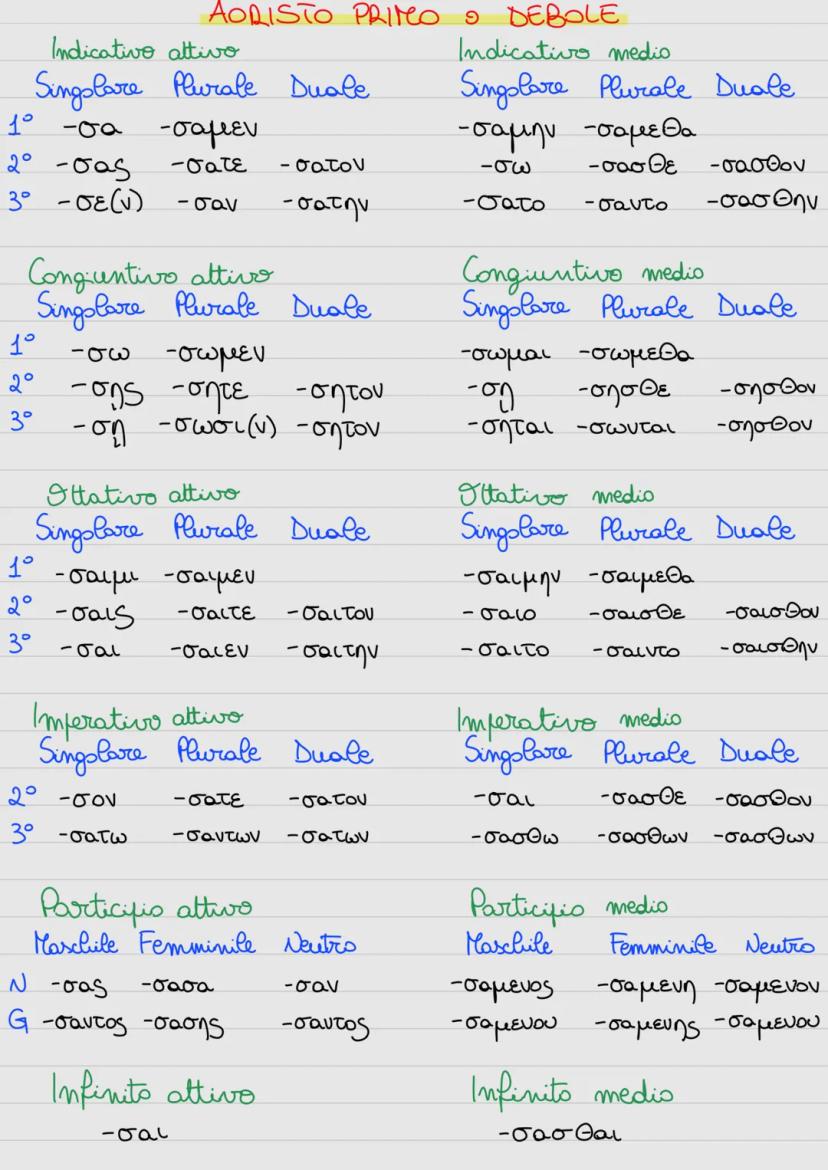 AORISTO PRIMO o DEBOLE
Indicativo attivo Indicativo medio
Singolare Plurale Duale Singolare Plurale Duale
1° -σα -σαμεν -σαμην -σαμεθα
2° -σας -σατε -σατον -σω -σασθε -σασθον
3° -σε(ν) -σαν -σατην -σατο -σαντο -σασθην
Congiuntivo attivo Congiuntivo medio
Singolare Plurale Duale Singolare Plurale Duale
1° -σω -σωμεν -σωμαι -σωμεθα
2° -σῃς -σητε -σητον -σῃ -σησθε -σησθον
3° -σῃ -σωσι(ν) -σητον -σηται -σωνται -σησθον
Ottativo attivo Ottativo medio
Singolare Plurale Duale Singolare Plurale Duale
1° -σαιμι -σαιμεν -σαιμην -σαιμεθα
2° -σαις -σαιτε -σαιτον -σαιο -σαισθε -σαισθον
3° -σαι -σαιεν -σαιτην -σαιτο -σαιντο -σαισθην
Imperativo attivo Imperativo medio
Singolare Plurale Duale Singolare Plurale Duale
2° -σον -σατε -σατον -σαι -σασθε -σασθον
3° -σατω -σαντων -σατων -σασθω -σασθων -σασθων
Participio attivo Participio medio
Maschile Femminile Neutro Maschile Femminile Neutro
N -σας -σασα -σαν -σαμενος -σαμενη -σαμενον
G -σαντος -σασης -σαντος -σαμενου -σαμενης -σαμενου
Infinito attivo Infinito medio
-σαι -σασθαι